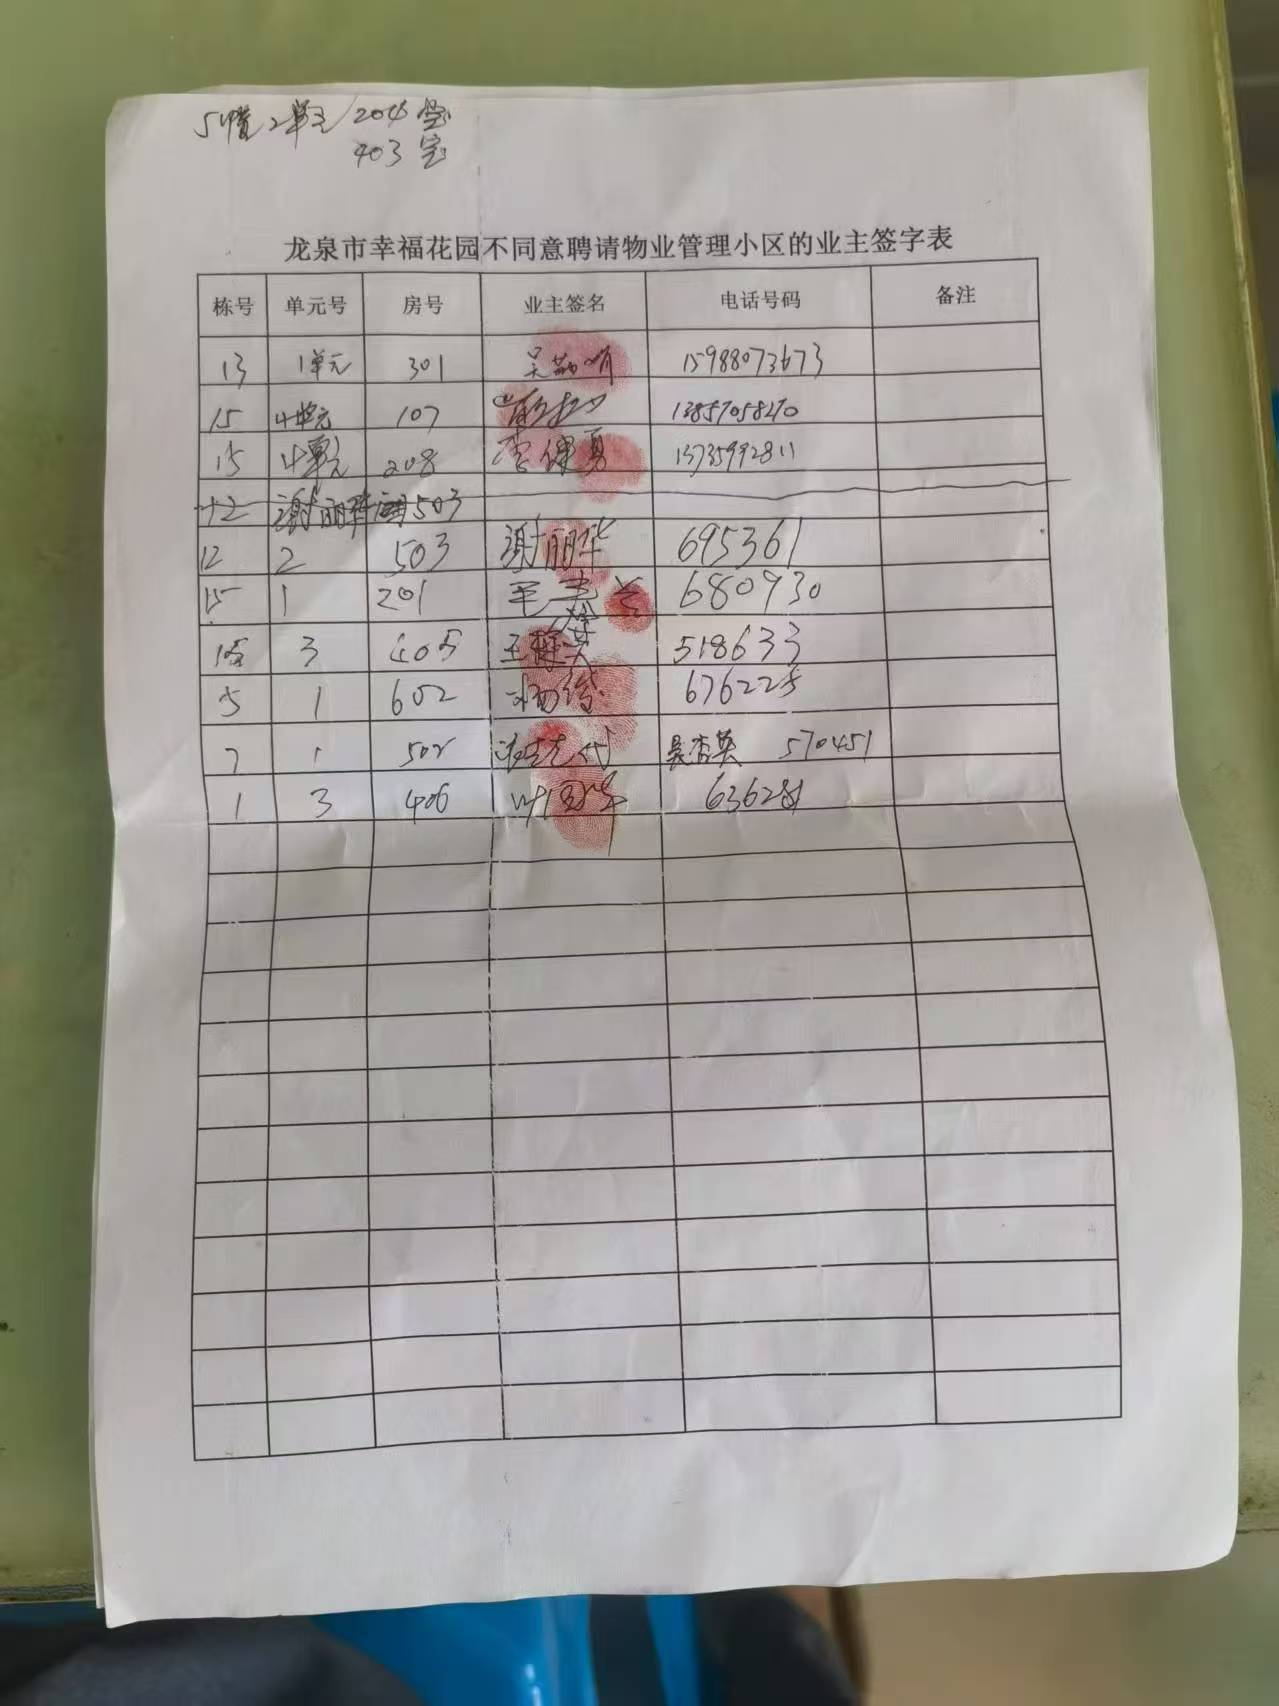 5幢2单元/204室
403室
龙泉市幸福花园不同意聘请物业管理小区的业主签字表
栋号 单元号 房号 业主签名 电话号码 备注
13 1单元 301 15988073673
15 4单元 107 13857058270
15 4单元 208 李保勇 13735992811
12 谢丽华 503
12 2 503 谢丽华 695361
15 1 201 680930
3 405 王 518633
5 1 602 杨 676225
7 1 502 吴杏英 570451
1 3 406 叶国华 636281